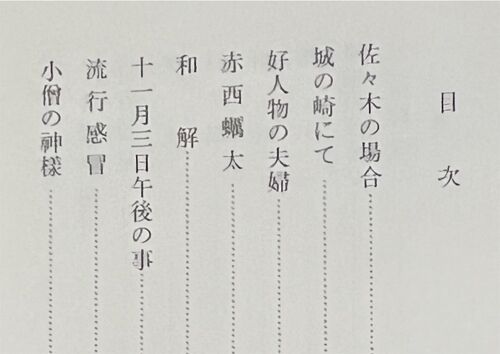 目次
佐々木の場合
城の崎にて
好人物の夫婦
赤西蠣太
和解
十一月三日午後の事
流行感冒
小僧の神様